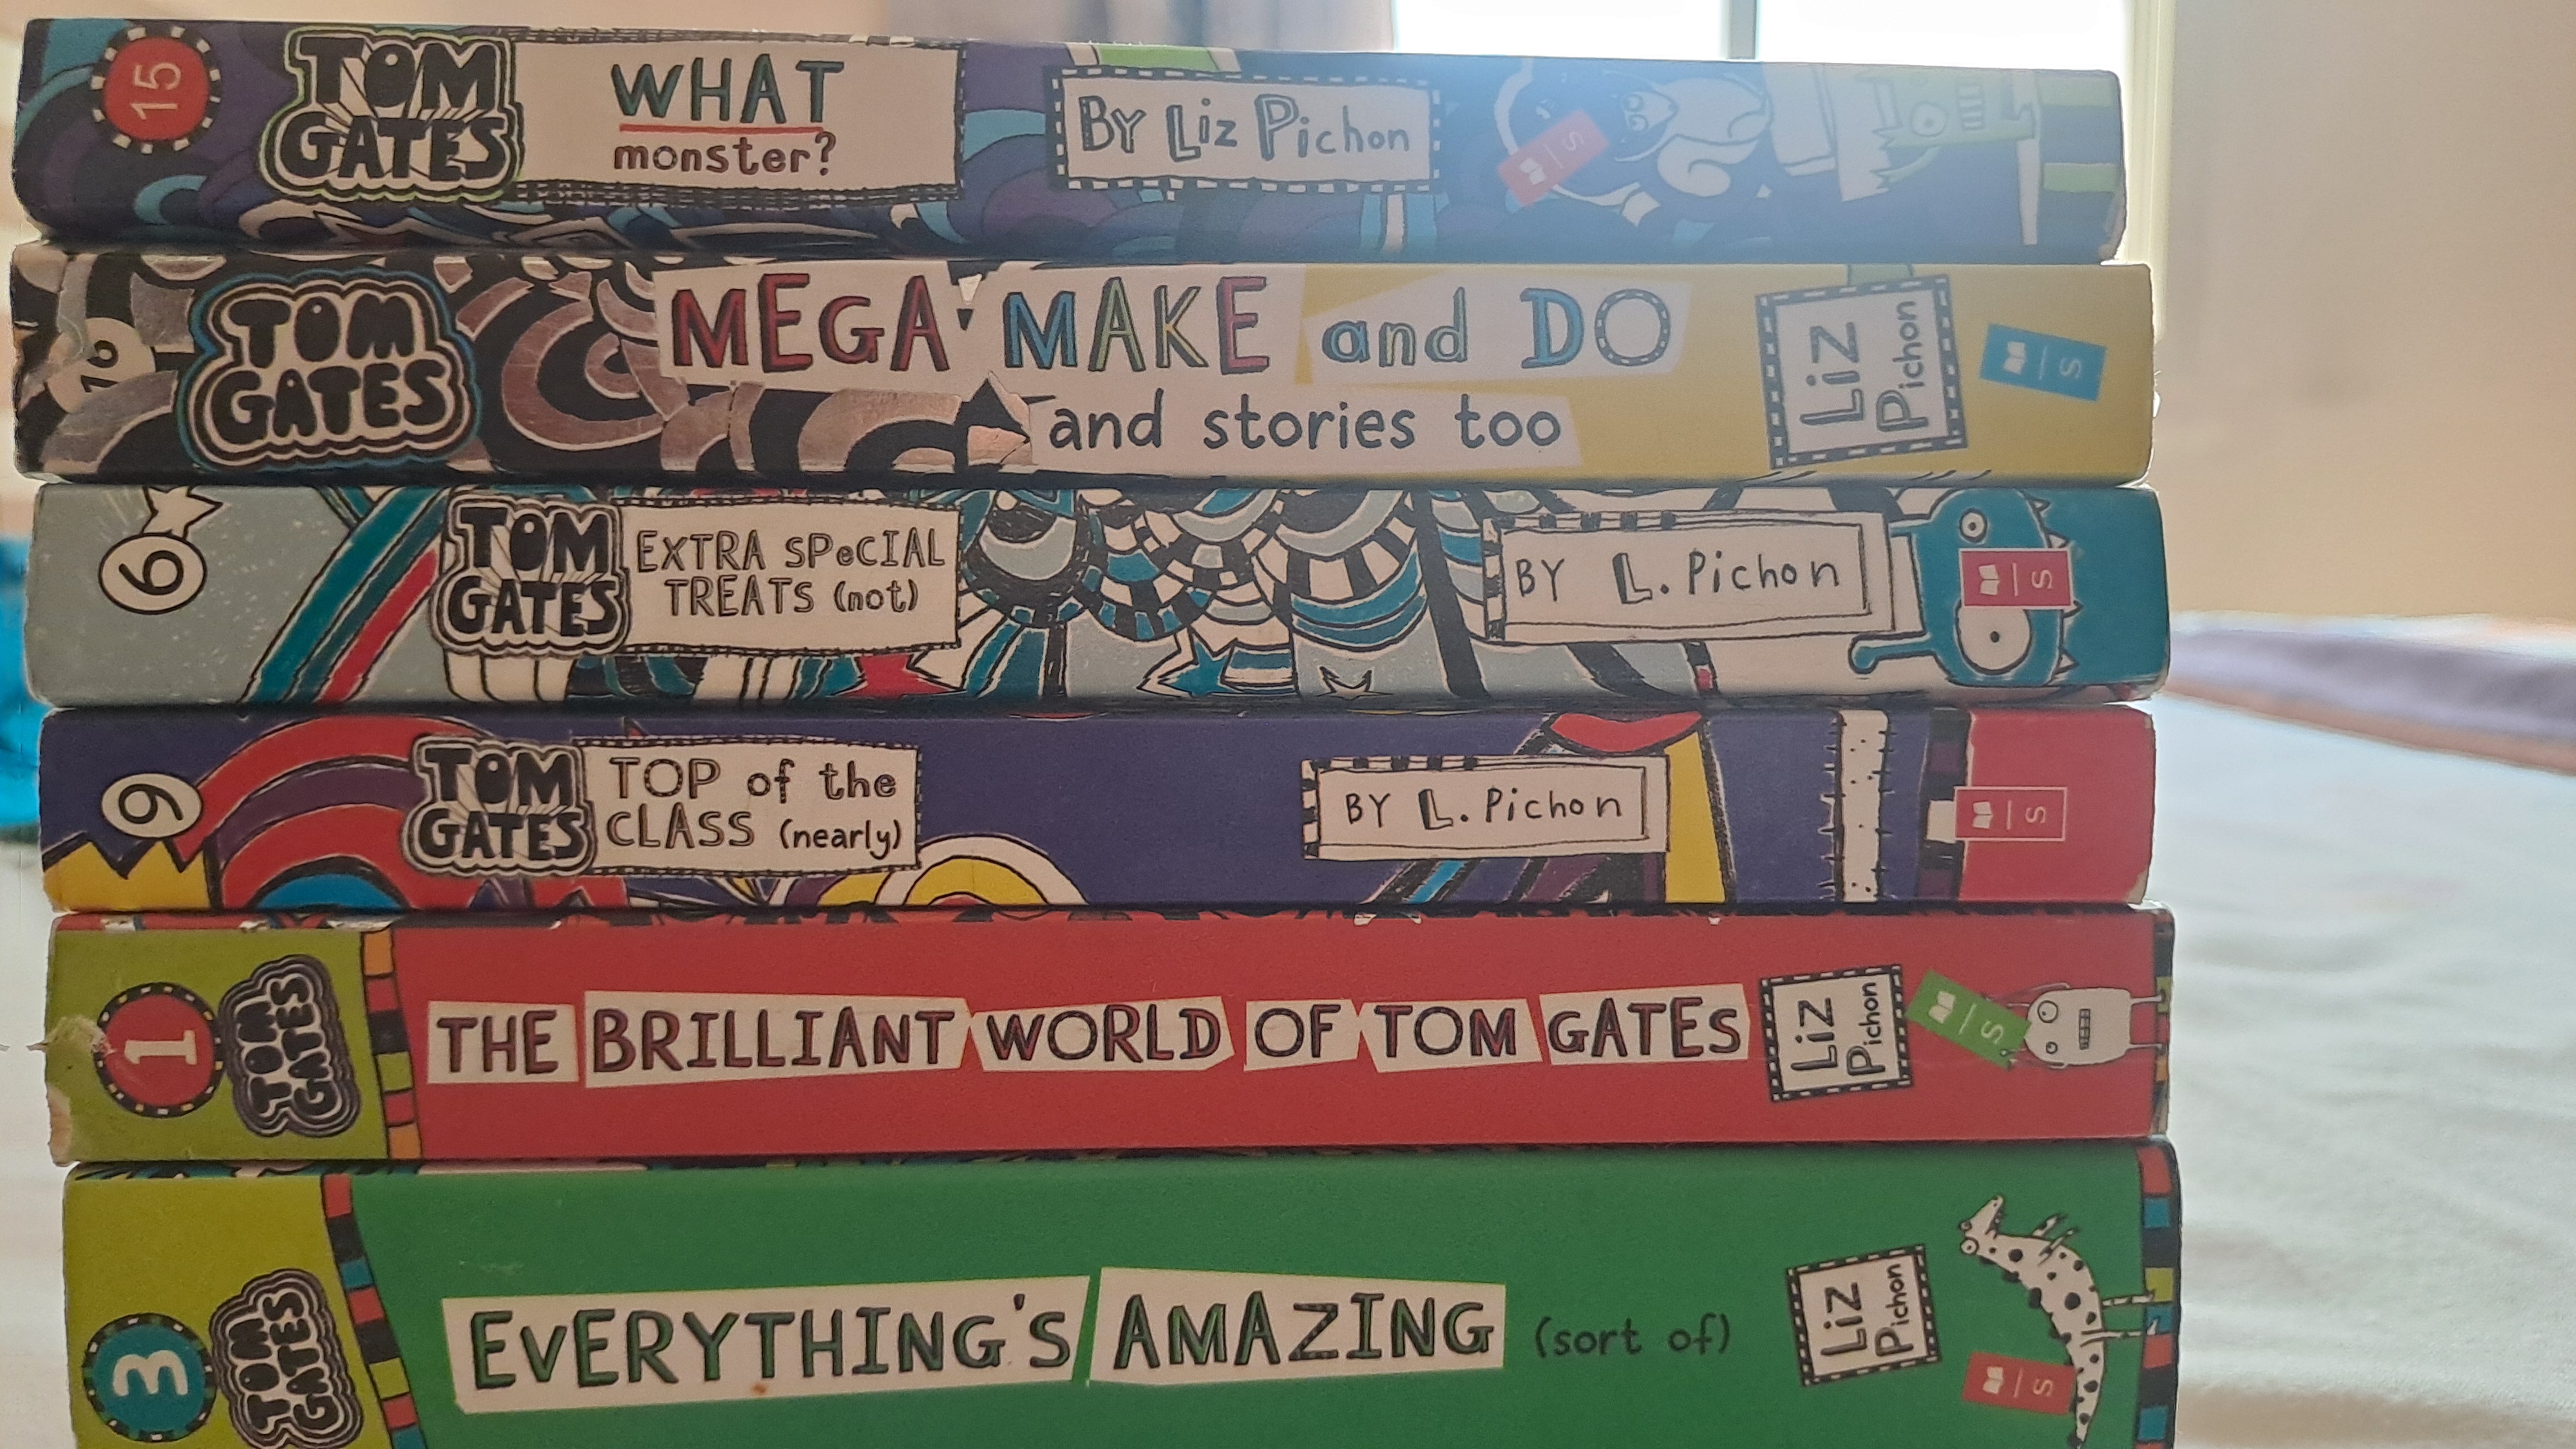 15
TOM
GATES
WHAT
monster?
BY Liz Pichon
S
16
TOM
GATES
MEGA MAKE and DO
and stories too
Liz
Pichon
S
6
TOM
GATES
EXTRA SPeCIAL
TREATS (not)
BY L. Pichon
S
9
TOM
GATES
TOP of the
CLASS (nearly)
BY L. Pichon
S
1
TOM
GATES
THE BRILLIANT WORLD OF TOM GATES
Liz
Pichon
S
3
TOM
GATES
EVERYTHING'S AMAZING (sort of)
Liz
Pichon
S